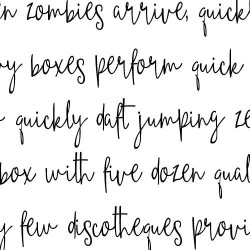 en zombies arrive, quickl
y boxes perform quick
quickly daft jumping ze
box with five dozen qual
y few discotheques provi